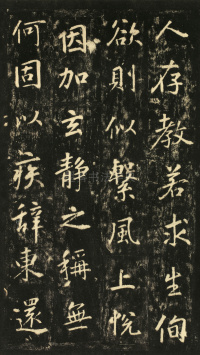 人存教若求生徇
欲則似繫風上悅
因加玄靜之稱無
何固以疾辭東還